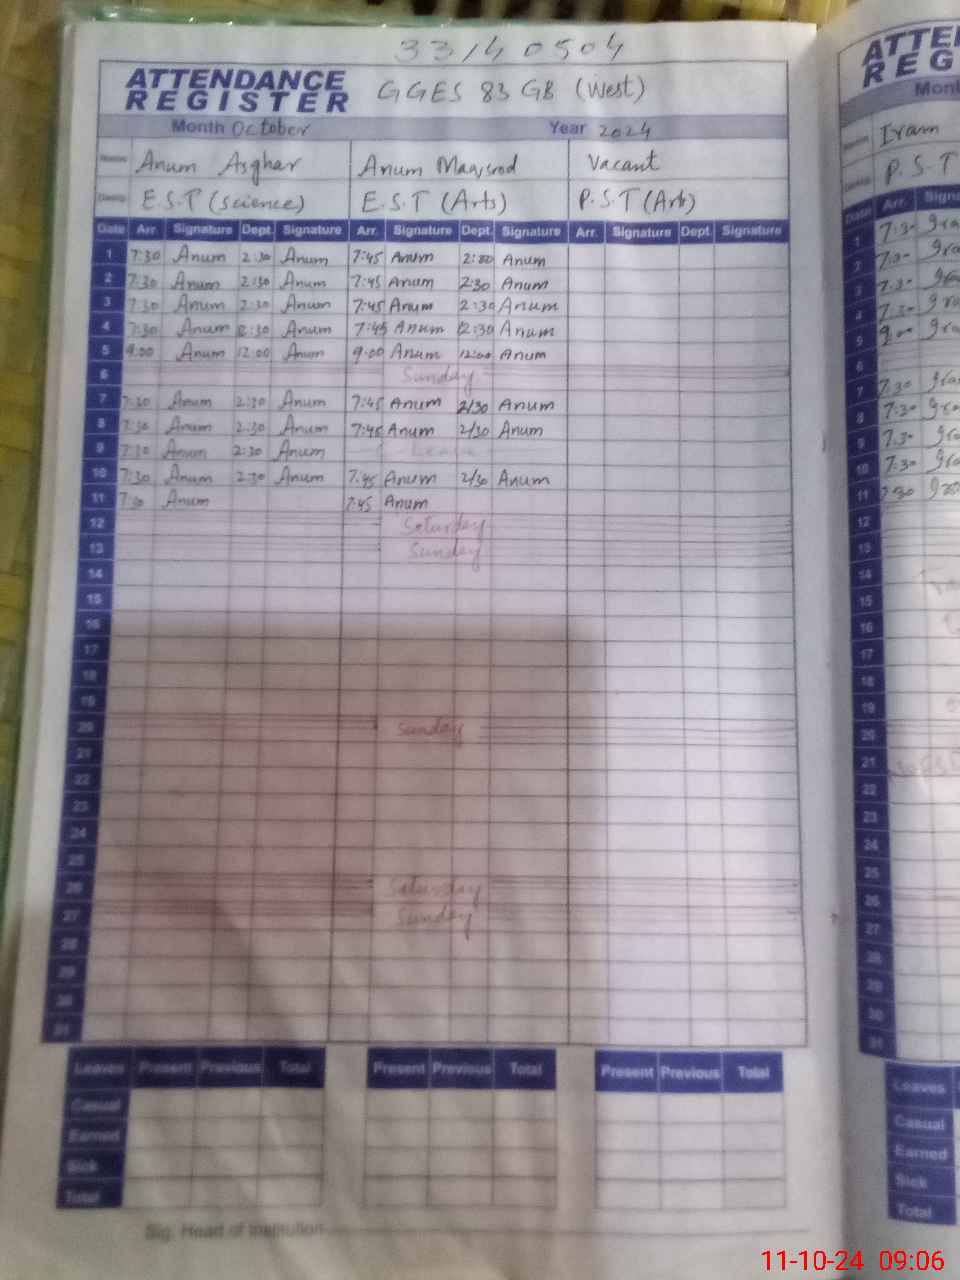 33140504
ATTENDANCE REGISTER GGES 83 GB (West)
Month October Year 2024
Name Anum Asghar Anum Maqsood Vacant
Desig. E.S.T (Science) E.S.T (Arts) P.S.T (Arts)
Date Arr. Signature Dept. Signature Arr. Signature Dept. Signature Arr. Signature Dept. Signature
1 7:30 Anum 2:30 Anum 7:45 Anum Anum
2 7:30 Anum 2:30 Anum 7:45 Anum 2:30 Anum
3 7:30 Anum 2:30 Anum 7:45 Anum 2:30 Anum
4 7:30 Anum 12:30 Anum 7:45 Anum 12:30 Anum
5 9:00 Anum 12:00 Anum 9:00 Anum 12:00 Anum
6 Sunday
7 7:30 Anum 2:30 Anum 7:45 Anum 2/30 Anum
8 7:30 Anum 2:30 Anum 7:45 Anum 2/30 Anum
9 7:30 Anum 2:30 Anum Leave
10 7:30 Anum 2:30 Anum 7:45 Anum 2/30 Anum
11 7:30 Anum 7:45 Anum
12 Saturday
13 Sunday
14
15
16
17
18
19
20 Sunday
21
22
23
24
25
26 Saturday
27 Sunday
28
29
30
31
Leaves Present Previous Total Present Previous Total Present Previous Total
Casual
Earned
Sick
Total
Sig. Head of Institution
ATTE
REG
Mont
Name Iram
Desig. P.S.T
Date Arr. Signa
1 7:30
2 7:30
3 7:30
4 7:30
5 9:00
6
7 7:30
8 7:30
9 7:30
10 7:30
11 7:30
12
13
14
15
16
17
18
19
20
21
22
23
24
25
26
27
28
29
30
31
Leaves
Casual
Earned
Sick
Total
11-10-24 09:06